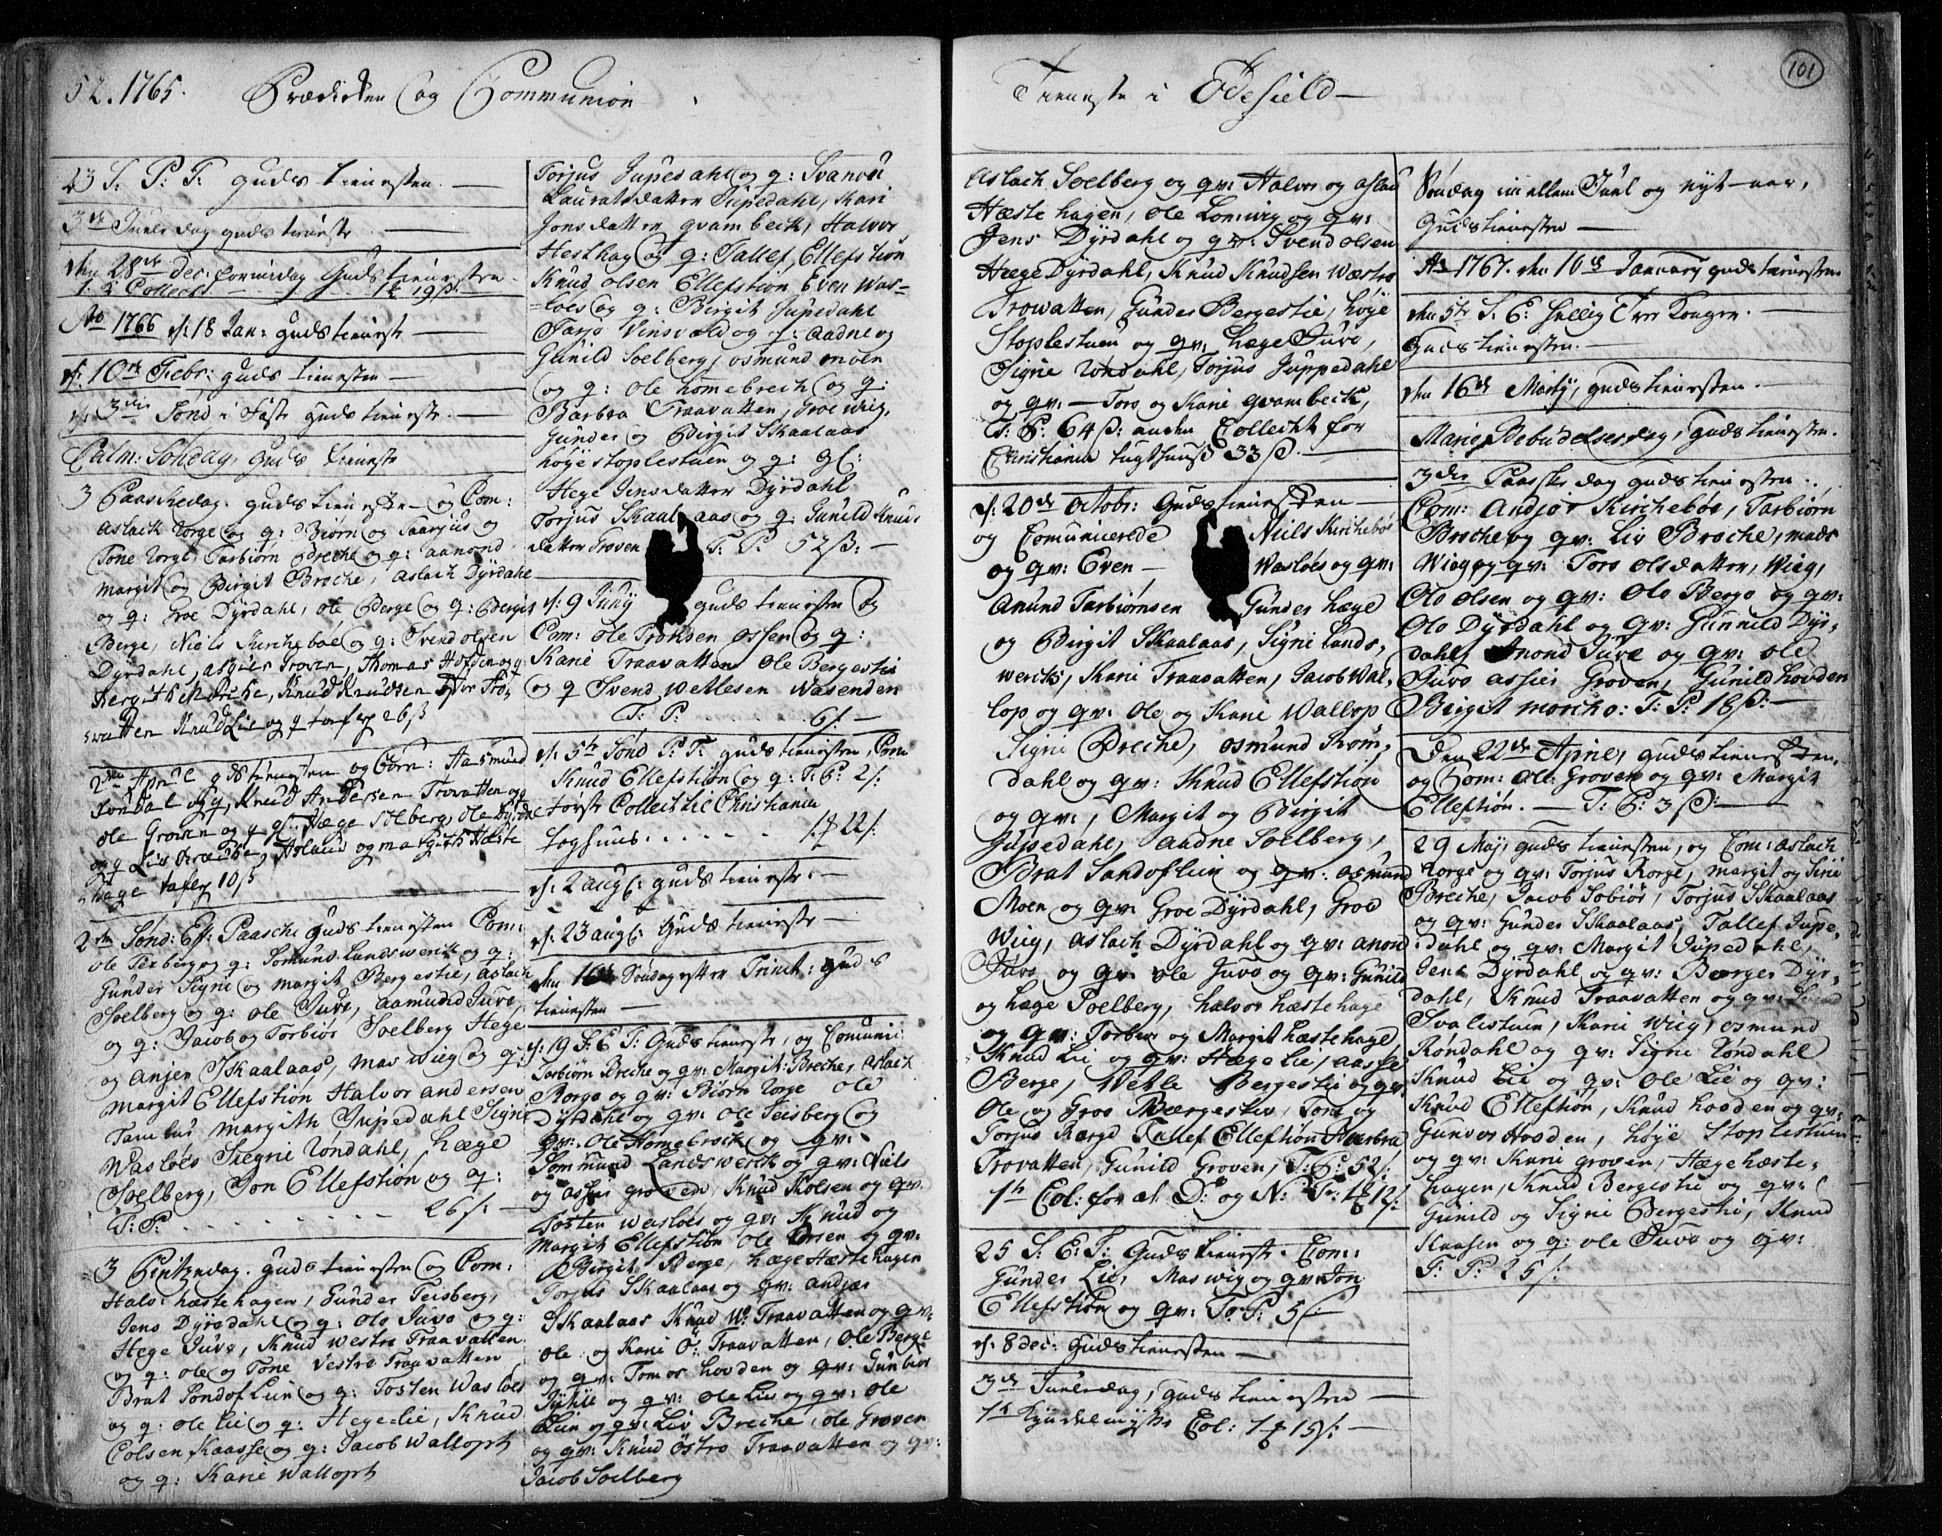 52. 1765. Prædicken Og Communion
23 S: P: T: Guds tienesten. —
3de Juule dag guds tieneste —
den 28de Dec: formidag Guds tienesten
1:ste Collect
Ao 1766 d: 18 Jan: guds tienest —
d: 10de Febr: guds tienesten —
d: 3die Sönd i Faste guds tieneste. —
Palm: Söndag, guds tieneste
3 Paaskedag. guds tienesten og Com:
Aslack Rorge og q: Biørn og Taarjus og
Tone Rorge Tarbiørn Breche og q: Aanond
Margit og Birgit Broche, Aslach Dyrdahl
og q: Groe Dyrdahl, ole Berge og q: Bergit
Berge, Niels Kirchebøe og q: Svend olsen
Dyrdahl, Asgier Groven, Thomas Hofden og q
Knud Knudsen
Knud Lie og q 26 ß
2den April gds tienesten og Com: Aasmund
Rondal og q, Knud Andersen Trovatten og
ole Groven og q Hæge Solberg, ole
og q Liv Breche, Aslaud og Margith Hæste
hage tafen 10 ß
2den Sönd: Eft: Paaschi Guds tienesten Com:
ole Texberg og q: Somund Landswerk og q:
Gunder Signe og margit Bergestie, Aslach
Soelberg og q: ole Juve, Aamund Juve,
og q: Jacob og Torbiør Soelberg Hege
og Anjer Skaalaas, Mas Wieg og q:
Margit Ellefstiön Halvor andersen
Tamlus margith Jupedahl Signe
Wasloes Siegrie Röndahl, Hæge
Soelberg, Jon Ellefstiön og q:
T: P: . . . . . . . . 26 ß: —
3 Pintzedag. Guds tienesten og Com:
Halv: hæstehagen, Gunder Teisberg,
Jens Dyredahl og q: Olo Juvo og q:
Hege Juve, Knud Westre Traavatten
og q: ole og Tone Vestre Traavatten
Brat Sondoflien og q: Tosten Wasloes
og q: ole Lie og q: Hege Lie, Knud
Colsen Kaasse og q: Jacob Walloph
og q: Karie Walloph
Torjus Jupedahl og q: Svanoü
Lauratsdatter Jupedahl, Kari
Jonsdatter qvambeck, Halvor
Hesthag og q: Tallef Ellefstiön
Knud olsen Ellefstion Even Was-
=loes og q: Birgit Jupedahl
Tarjo Vinsvald og q: Aadne og
Gunild Soelberg, osmund moen
og q: ole hömebrech og q:
Barboa Traavatten, Groe Wig,
Gunder og Birgit Skaalaas
höye stoplestuen og q: gl:
Hege Jensdatter Dyrdahl
Torjus Skaalaas og q: Gunild Knuds
datter Groven T: P: 52 ß: —
d: 9 Juny guds tienesten og
Com: ole Troksen ossen og q:
Karie Traavatten ole Bergestie
og q Svend Wetlesen Nasenden
T: P: . . . . . . 6 ß. —
d: 5te Sönd P: T: guds tienesten, Com
Knud Ellefstiön og q: T: P: 2 ß:
forste Collect til Christiania
togthuus . . . . . 22 ß.
d: 2 Augs: guds tieneste. —
d: 23 Augs: Guds tieneste —
den 16de Söndag efter Trinit: guds
tienesten —
d: 19 S: E: T: Guds tieneste, og Comunic:
Tarbiörn Breche og qv: Margit Breche, Aslach
Rorge og qv: Biörn Rorge ole
Dyrdahl og qv: ole Teisberg og
qv: ole Homebrock og qv:
Sommund Landswerck og qv: Niels
og asgier grovede, Knud Kolsen og qv
Tosten Wasloes og qv: Knud og
Margit Ellefstiön ole Orsen og qv:
Birgit Berge, Hæge Hæstehagen
Torjus Skaalaas og qv: Andjær
Skaalaas Knud W: Traavatten og qv:
ole og Kari Ö: Traavatten, ole Berge
og qv: Tomos Hovden og qv: Gunbior
og qv: ole Lie og qv: ole
Lien og qv: Liv Breche, ole Groven
og qv: Knud östre Traavatten og qv:
Jacob Soelberg
Tieneste i Ödefield —
101
Aslach Soelberg og qv: Halvor og Aslau
Hæstehagen, ole Lonwig og qv:
Jens Dyrdahl og qv: Svend olsen
Hæge Dyrdahl, Knud Knudsen Wæstre
Trowatten, Gunder Bergestie, höye
Stoplestuen og qv: hæge Juve,
Signe Röndahl, Torjus Juppedahl
og qv: — Tors og Karie qvambeck,
T: P: 64 ß: anden Collecht for
Christiania tugthuus 33 ß. —
d: 20de Octobr: Guds tienesten —
og Comunicerede Niels Kirchebøe
og qv: Even — Wasloes og qv:
Amund Tarbiørnsen Gunder hæge
og Birgit Skaalaas, Signe Lands,
werck, Karie Traavatten, Jacob Wal,
lop og qv: ole og Karie Wallop
Signe Breche, osmund Röm,
dahl og qv: Knud Ellefstion
og qv:, Margit og Birgit
Jupedahl, Aadne Soelberg,
Brat Sandoflien og qv: osmund
Moen og qv: Groe Dyrdahl, Groe
Wieg, Aslach Dyrdahl og qv: Anond
Juvo og qv: ole Juvo og qv: Gunild
og hæge Soelberg, halvor hæstehage
og qv: Torber og Margit hæstehage,
Knud Lie og qv: Hæge Lie, Aasse
Berge, Wetle Bergestie og qv:
Ole og Groe Bærgestie, Tone og
Torjus Rorge Tallef Ellefstiön Barbra
Trovatten, Gunild Groven, T: P: 52 ß:
1te Col: for at D: og N: Tr: 12 ß.
25 S: E: T: Guds tieneste. Com:
Gunder Lie, Mas wig og qv: Jon
Ellefstiön og qv: T: P: 5 ß —
d: 8 dec: Guds tienesten —
3de Juuledag, guds tienesten —
1te Col: 19 ß: —
Söndag imellem Juul og nyt-aar,
Guds tienesten —
Ao 1767. den 10de January guds tienesten
den 5te S: E: Hellig Tre Konger. —
Guds tienesten. —
den 16de Marty, guds tienesten. —
Mariæ Bebudelsesdag, guds tienesten.
3die Paaske dag guds tienesten.
Com: Andjør Kirchebøe, Tarbiørn
Broche og qv: Liv Broche, mads
Wieg og qv: Tors olsdatter, Wieg,
Olo olsen og qv: Olo Bergo og qv:
Olo Dyrdahl og qv: Gunnild Dyr,
dahl, Anond Juve og qv: ole
Juvo assier Groven, Gunild hovden
Birgit morcho: T: P: 18 ß: —
Den 22de April, guds tienesten,
og Com: ole Groven og qv: Margit
Elleftiön. — T: P: 3 ß: —
29 Maj, guds tienesten, og Com: Aslach
Rorge og qv: Torjus Rorge, margit og Sini
Breche, Jacob Sobiör, Torjus Skaalaas
og qv: Gunder Skaalaas, Tallef Jupe,
dahl og qv: Margit Jupedahl,
Jens Dyrdahl og qv: Borger Dyr,
dahl, Knud Traavatten og qv:
Svalestuen, Karie Wieg, osmund
Röndahl og qv: Signe Röndahl
Knud Lie og qv: ole Lie og qv:
Knud Elleftiön, Knud hovden og qv:
Gunvor Hovden, höye Stoplestuen
og qv: Karie groven, Hæge hæste,
hagen, Knud Bergestie og qv:
Gunild og Signe Bergestie, Knud
Kaasen og q: ole Juvo og qv:
T: P: 25 ß: